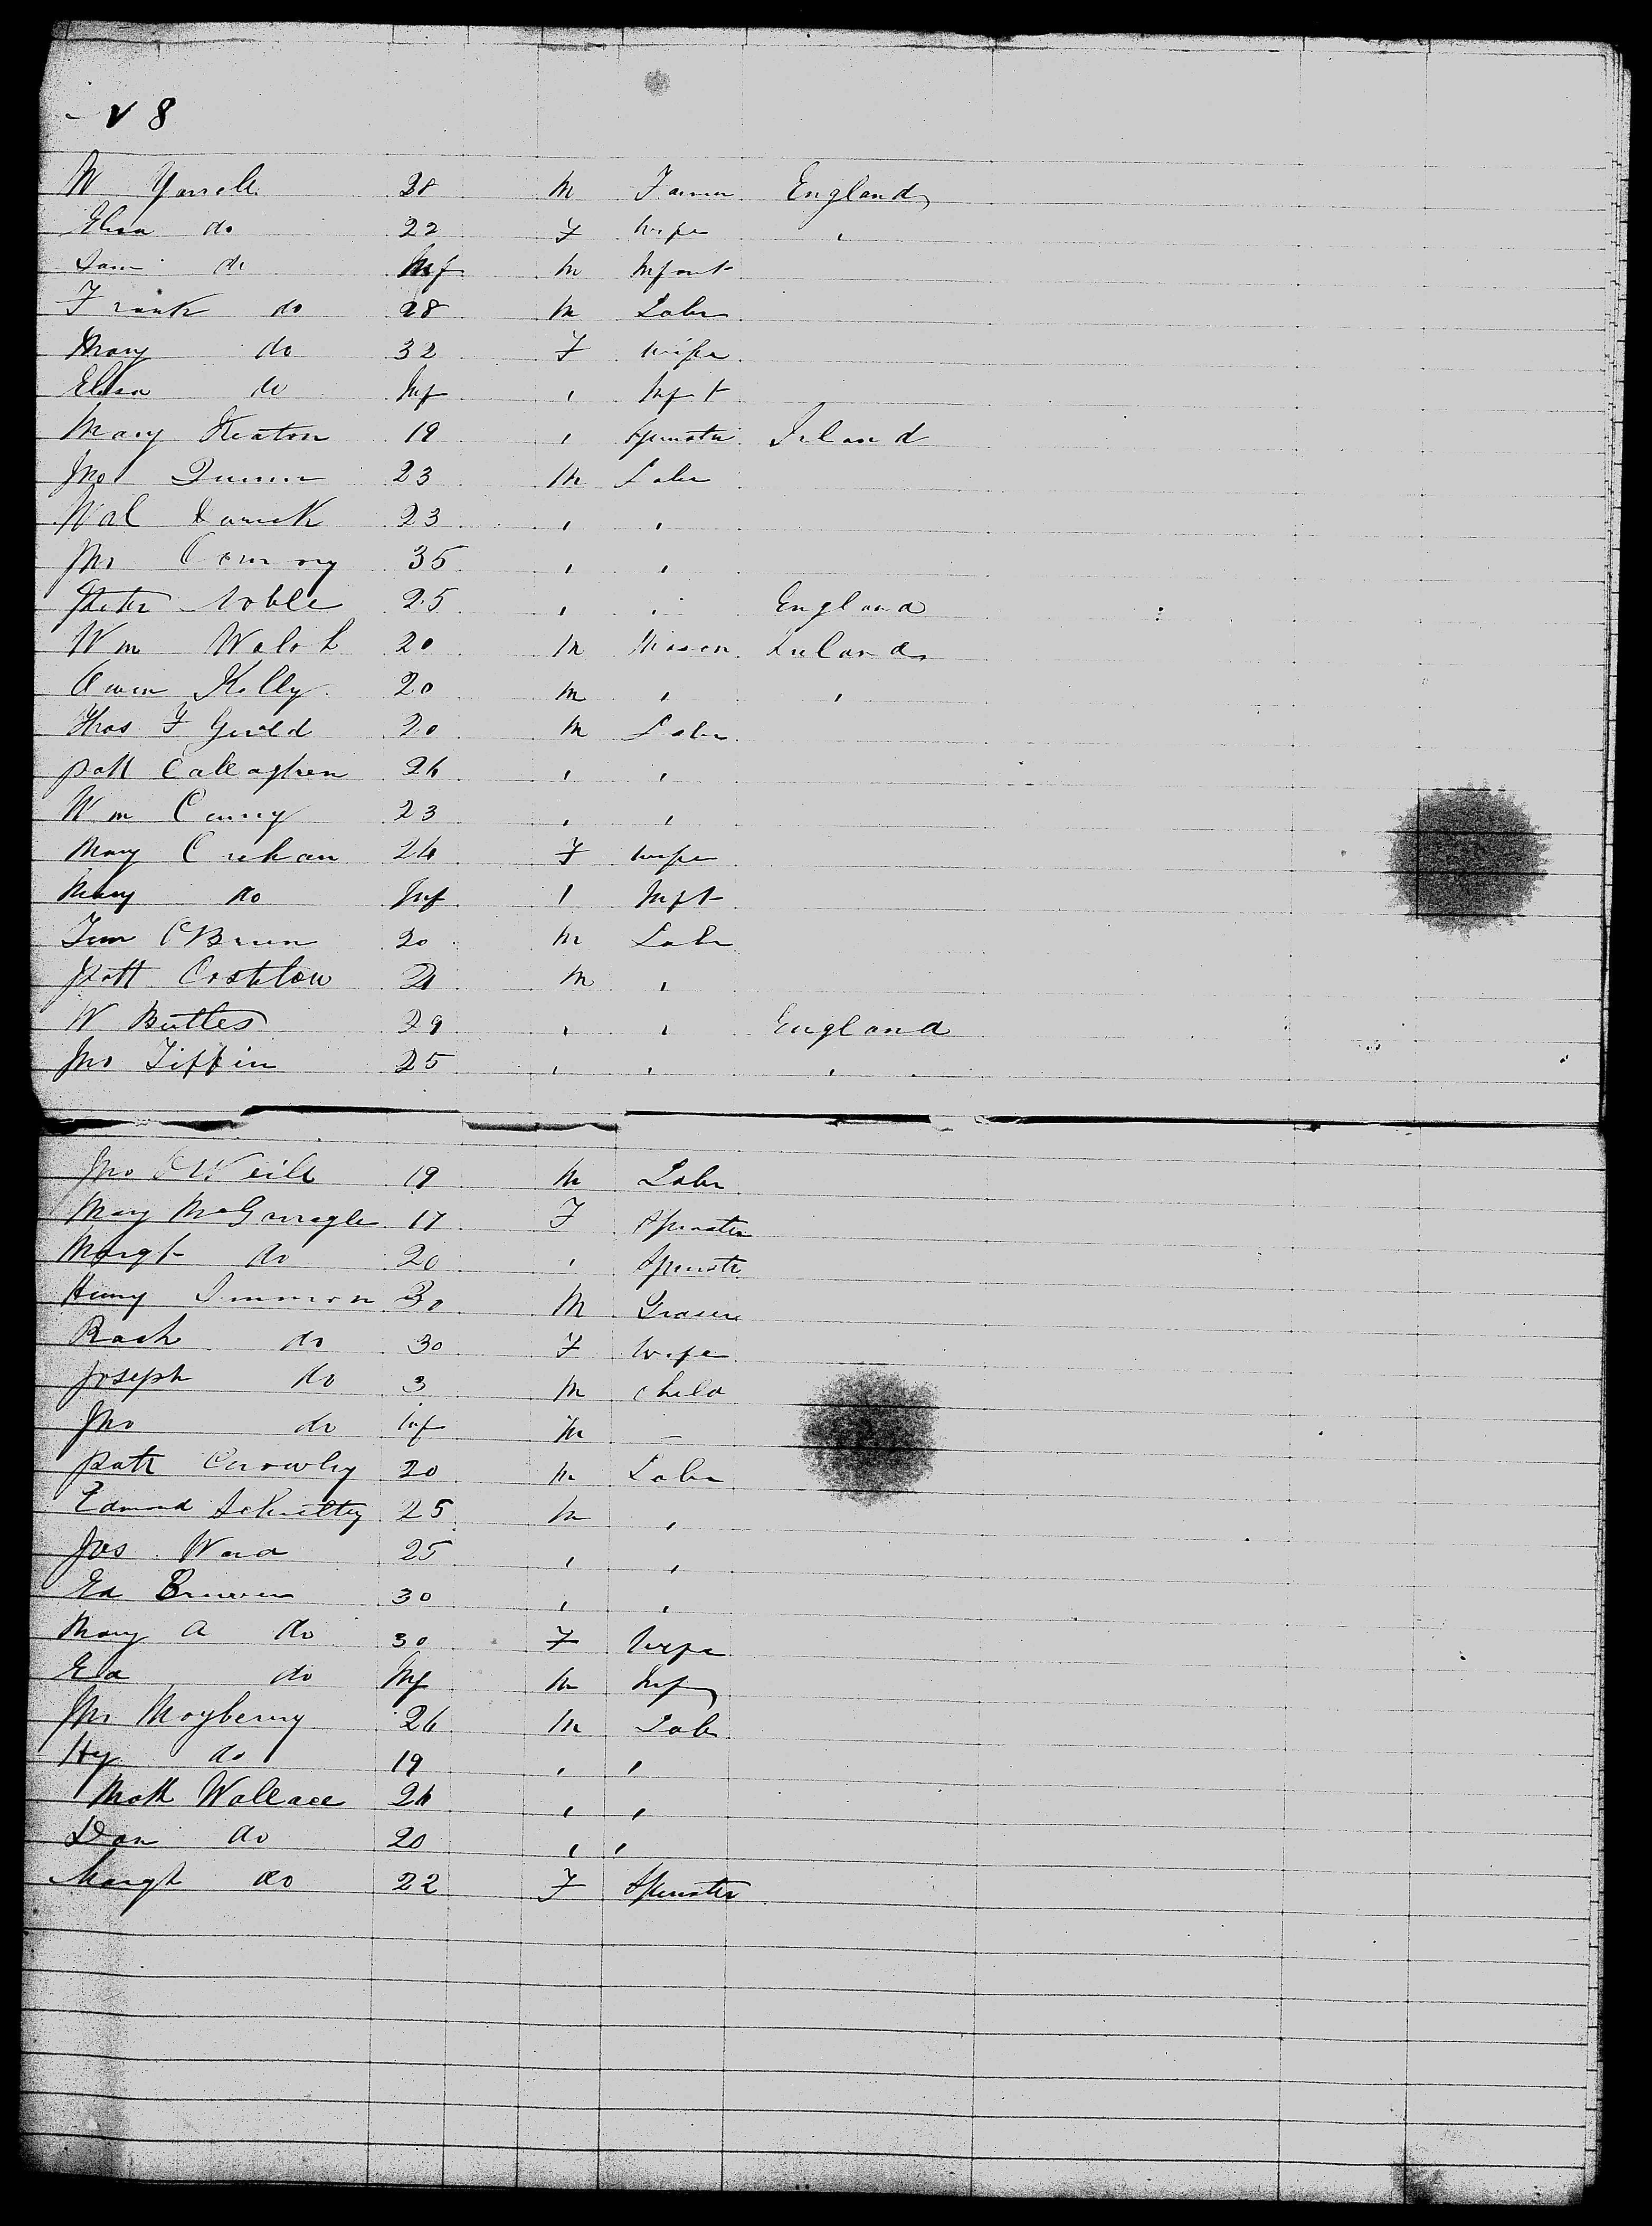 8
W Yarrell 28 M Farmer England
Elisa do 22 F Wife "
Sam do Inf M Infant
Frank do 28 M Labr
Mary do 32 F Wife
Elisa do Inf " Inft
Mary Keaton 19 " Spinster Ireland
Jno Quinn 23 M Labr
23 " "
Jno 35 " "
Peter Noble 25 " " England
Wm Walsh 20 M Mason Ireland
Owen Kelly 20 M " "
Thos F Gerald 20 M Labr
Patt Callaghen 26 " "
Wm 23 " "
Mary 24 F Wife
Mary do Inf " Inft
Tim OBrien 20 M Labr
Patt Costelow 21 M "
W Buttes 29 " " England
Jno Tiffin 25 " " "
Jno ONeill 19 M Labr
Mary 17 F Spinster
Margt do 20 " Spinstr
Henry 30 M
Rach do 30 F Wife
Joseph do 3 M Child
Jno do Inf M –
Patt 20 M Labr
Edmond 25 M "
Jas Ward 25 " "
Ed 30 " "
Mary A do 30 F Wife
Ed do Inf M Inf
Jno Mayberry 26 M Labr
Hy do 19 " "
Matt Wallace 24 " "
Dan do 20 " "
Margt do 22 F Spinster